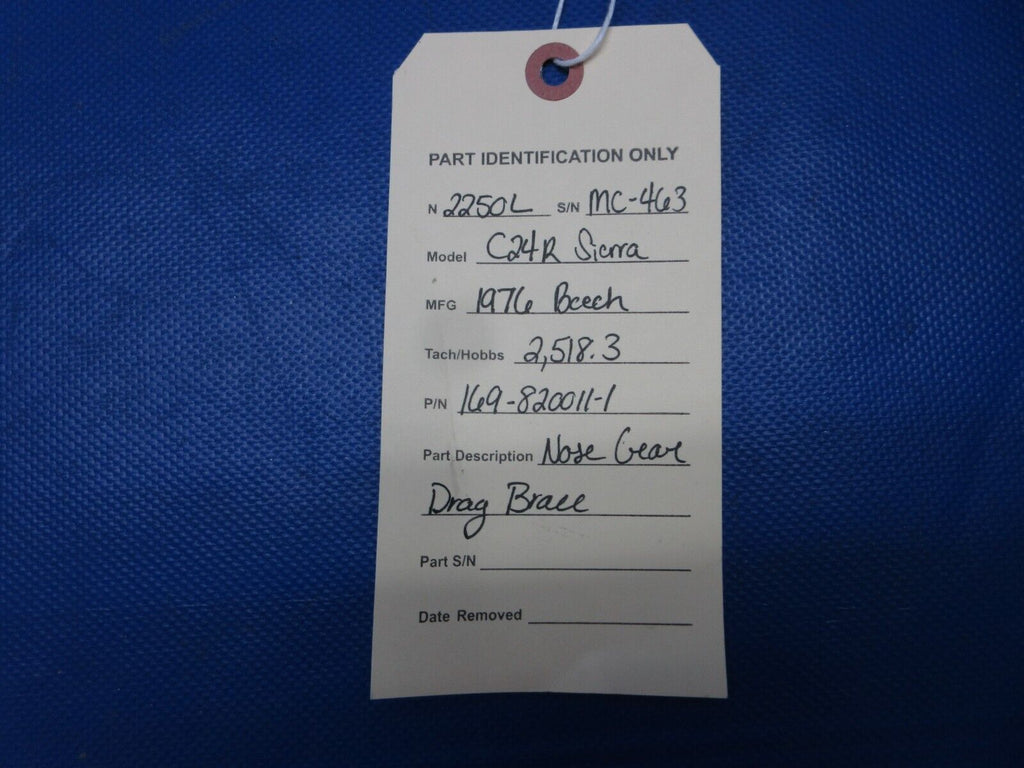 PART IDENTIFICATION ONLY
N 2250L S/N MC-463
Model C24R Sierra
MFG 1976 Beech
Tach/Hobbs 2,518.3
P/N 169-820011-1
Part Description Nose Gear
Drag Brace
Part S/N
Date Removed